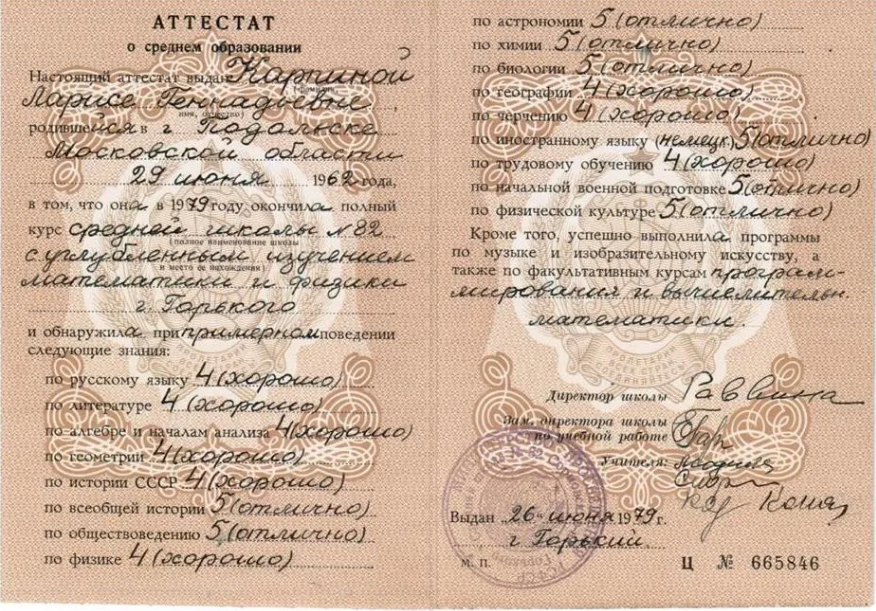 АТТЕСТАТ
о среднем образовании
Настоящий аттестат выдан Карпиной
(фамилия,
Ларисе Геннадьевне,
имя, отчество)
родившейся в г Подольске
Московской области
29 июня 1962 года,
в том, что она в 1979 году окончила полный
курс средней школы №82
(полное наименование школы
с углубленным изучением
и место ее нахождения)
математики и физики
г. Горького
и обнаружила при примерном поведении
следующие знания:
по русскому языку 4 (хорошо)
по литературе 4 (хорошо)
по алгебре и началам анализа 4 (хорошо)
по геометрии 4 (хорошо)
по истории СССР 4 (хорошо)
по всеобщей истории 5 (отлично)
по обществоведению 5 (отлично)
по физике 4 (хорошо)
по астрономии 5 (отлично)
по химии 5 (отлично)
по биологии 5 (отлично)
по географии 4 (хорошо)
по черчению 4 (хорошо)
по иностранному языку (немецк.) 5 (отлично)
по трудовому обучению 4 (хорошо)
по начальной военной подготовке 5 (отлично)
по физической культуре 5 (отлично)
Кроме того, успешно выполнила программы
по музыке и изобразительному искусству, а
также по факультативным курсам програм-
мирования и вычислительн.
математики.
Директор школы
Зам. директора школы
по учебной работе
Учителя:
Выдан „26“ июня 1979 г.
г Горький
М. П.
Ц № 665846